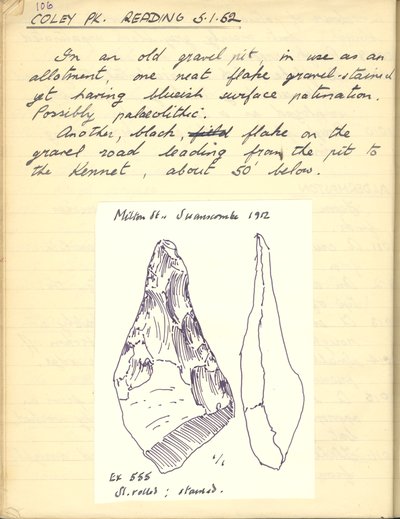 106
COLEY PK. READING 5.1.52
In an old gravel pit, in use as an
allotment, one neat flake gravel-stained
yet having blueish surface patination.
Possibly palaeolithic.
Another, black, flake on the
gravel road leading from the pit to
the Kennet, about 50' below.
Milton St., Swanscombe 1912
1/1
Ex 555
Sl. rolled; stained.